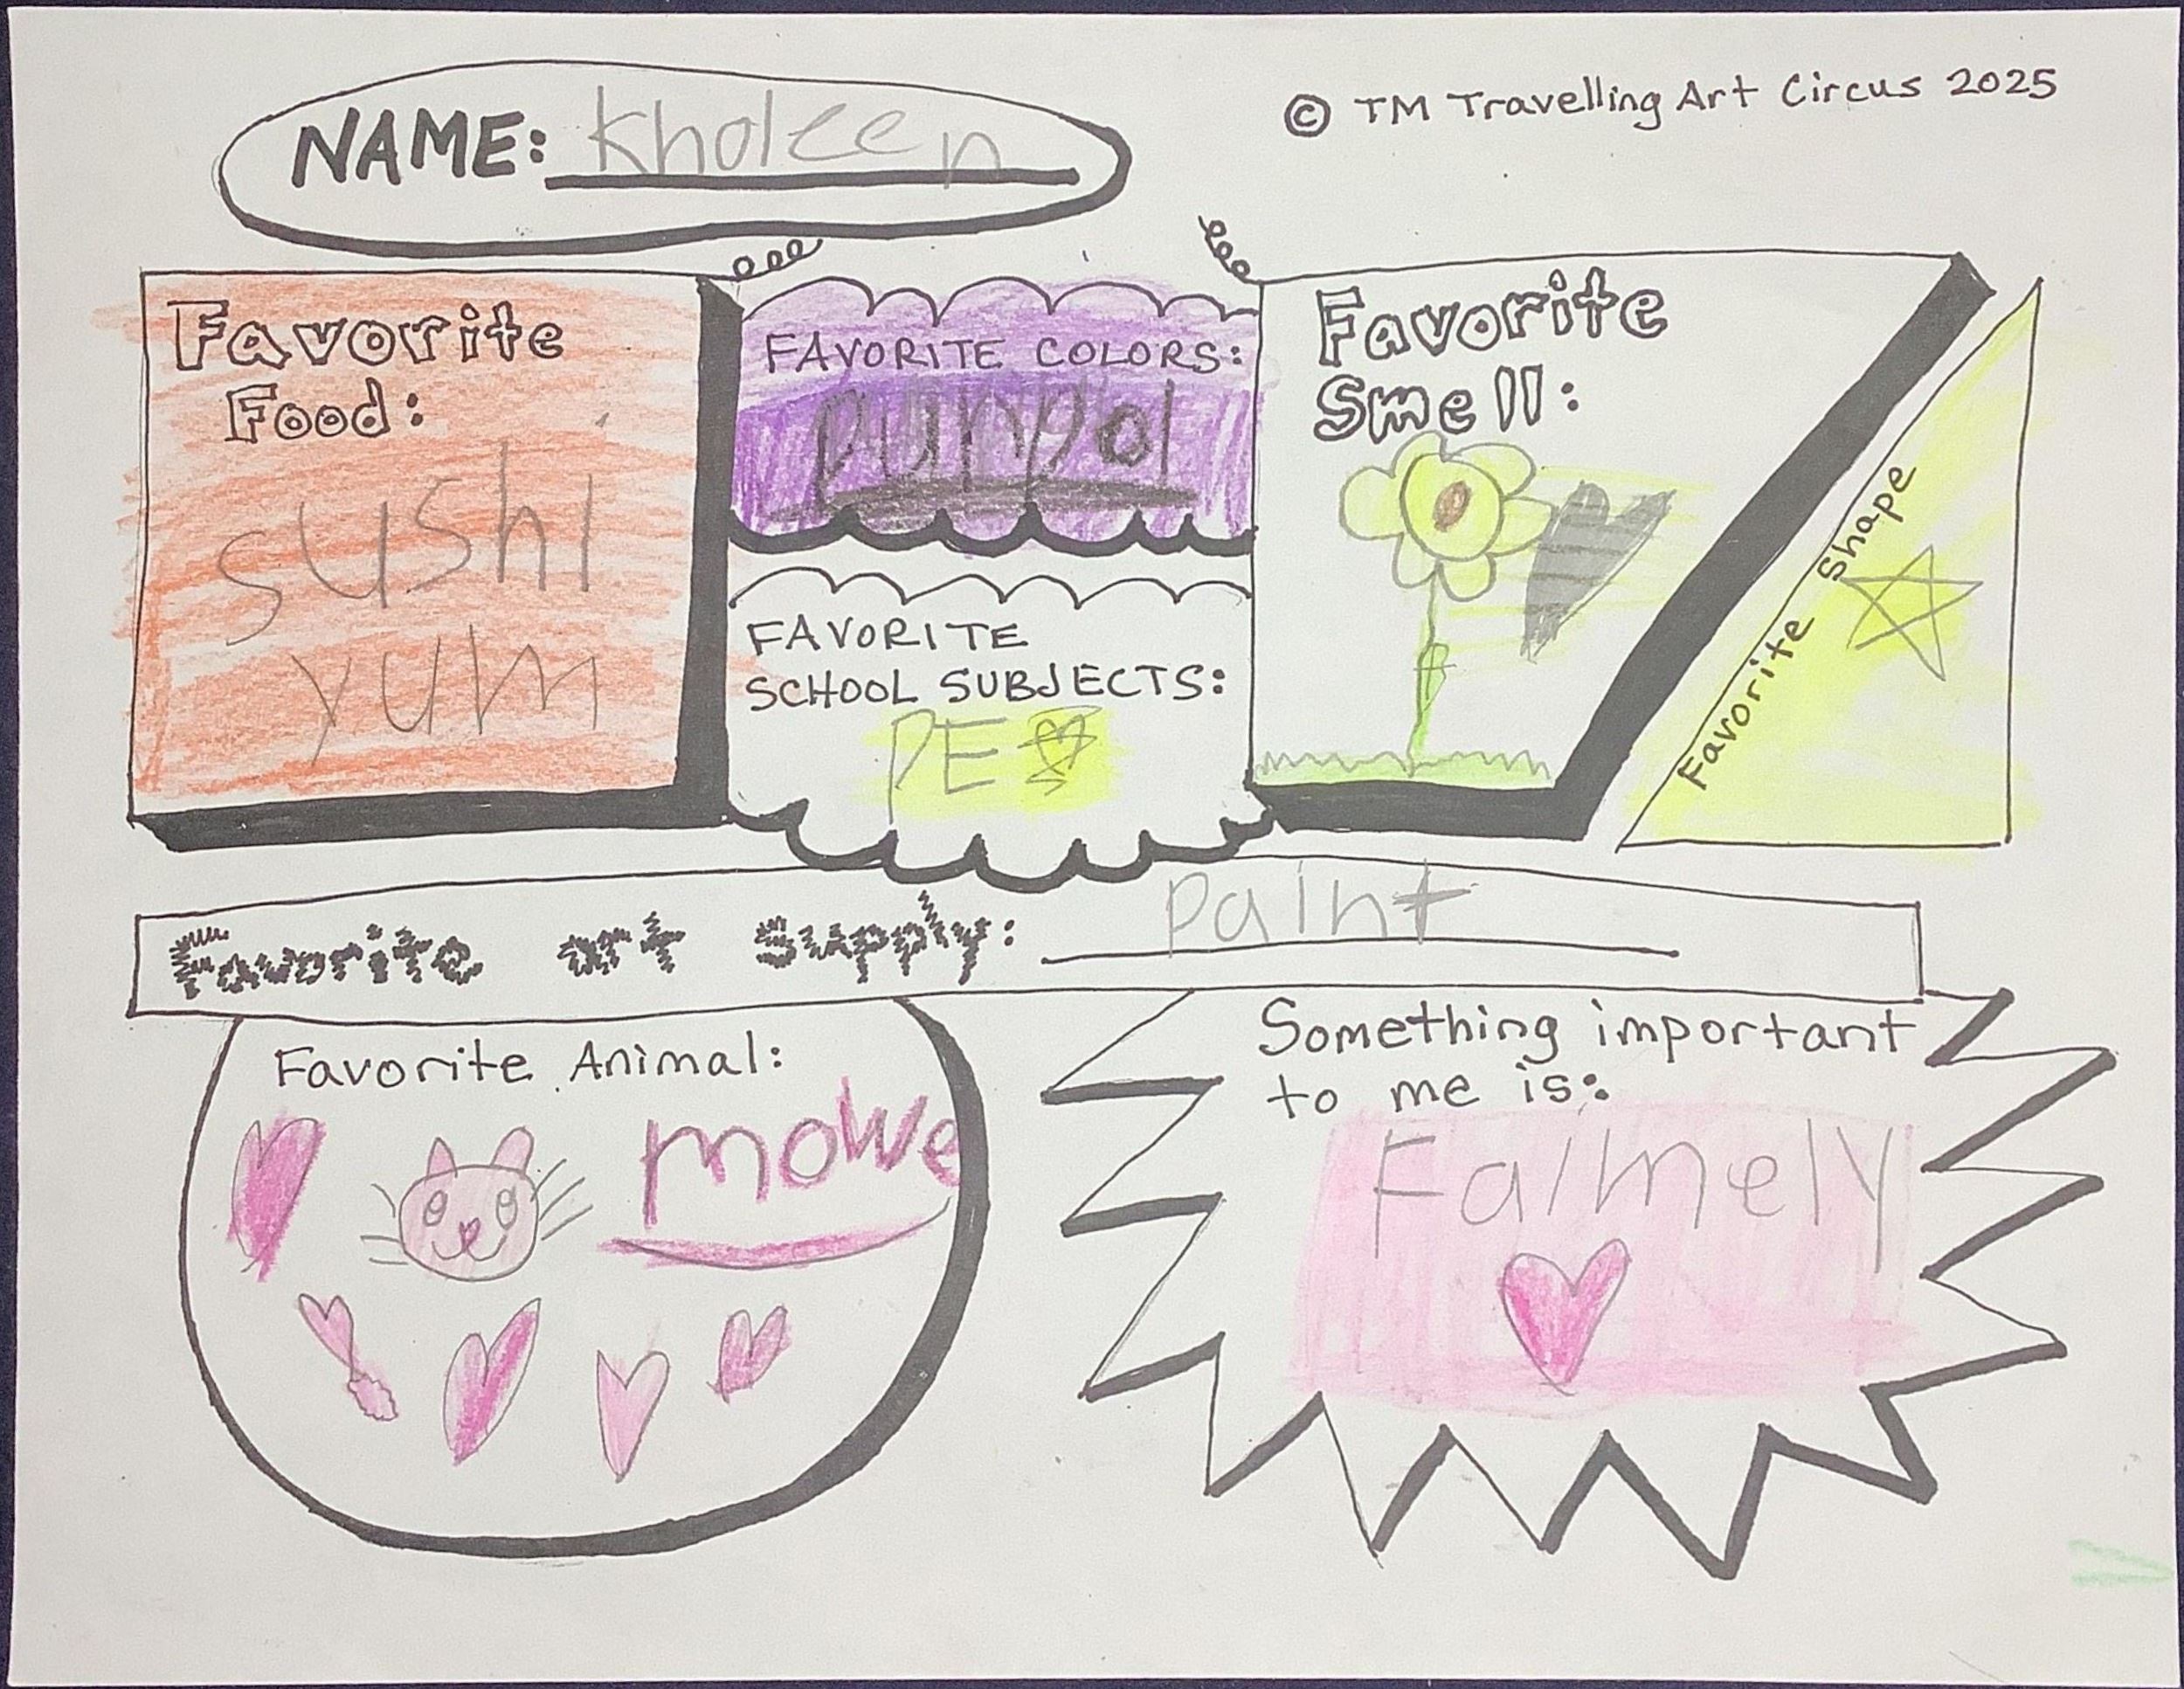 NAME: Kholeen
© TM Travelling Art Circus 2025
Favorite
Food:
sushi
yum
FAVORITE COLORS:
purpol
FAVORITE
SCHOOL SUBJECTS:
PE
Favorite
Smell:
Favorite Shape
Favorite art supply: paint
Favorite Animal:
mowe
Something important
to me is:
Faimely